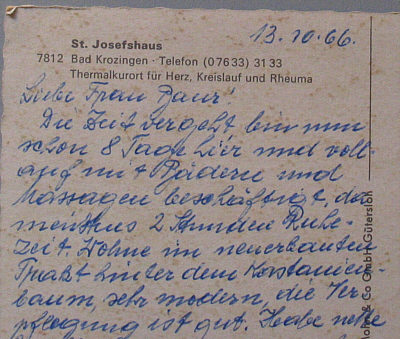 13.10.66.
St. Josefshaus
7812 Bad Krozingen · Telefon (07633) 3133
Thermalkurort für Herz, Kreislauf und Rheuma
Liebe Frau
Die Zeit vergeht, bin nun
schon 8 Tage hier und voll-
auf mit Bädern und
Massagen beschäftigt, da
2 Stunden Ruhe-
zeit. Wohne im neuerbauten
Trakt hinter dem Kastanien-
baum, sehr modern, die Ver-
pflegung ist gut. Habe nette
& Co GmbH Gütersloh